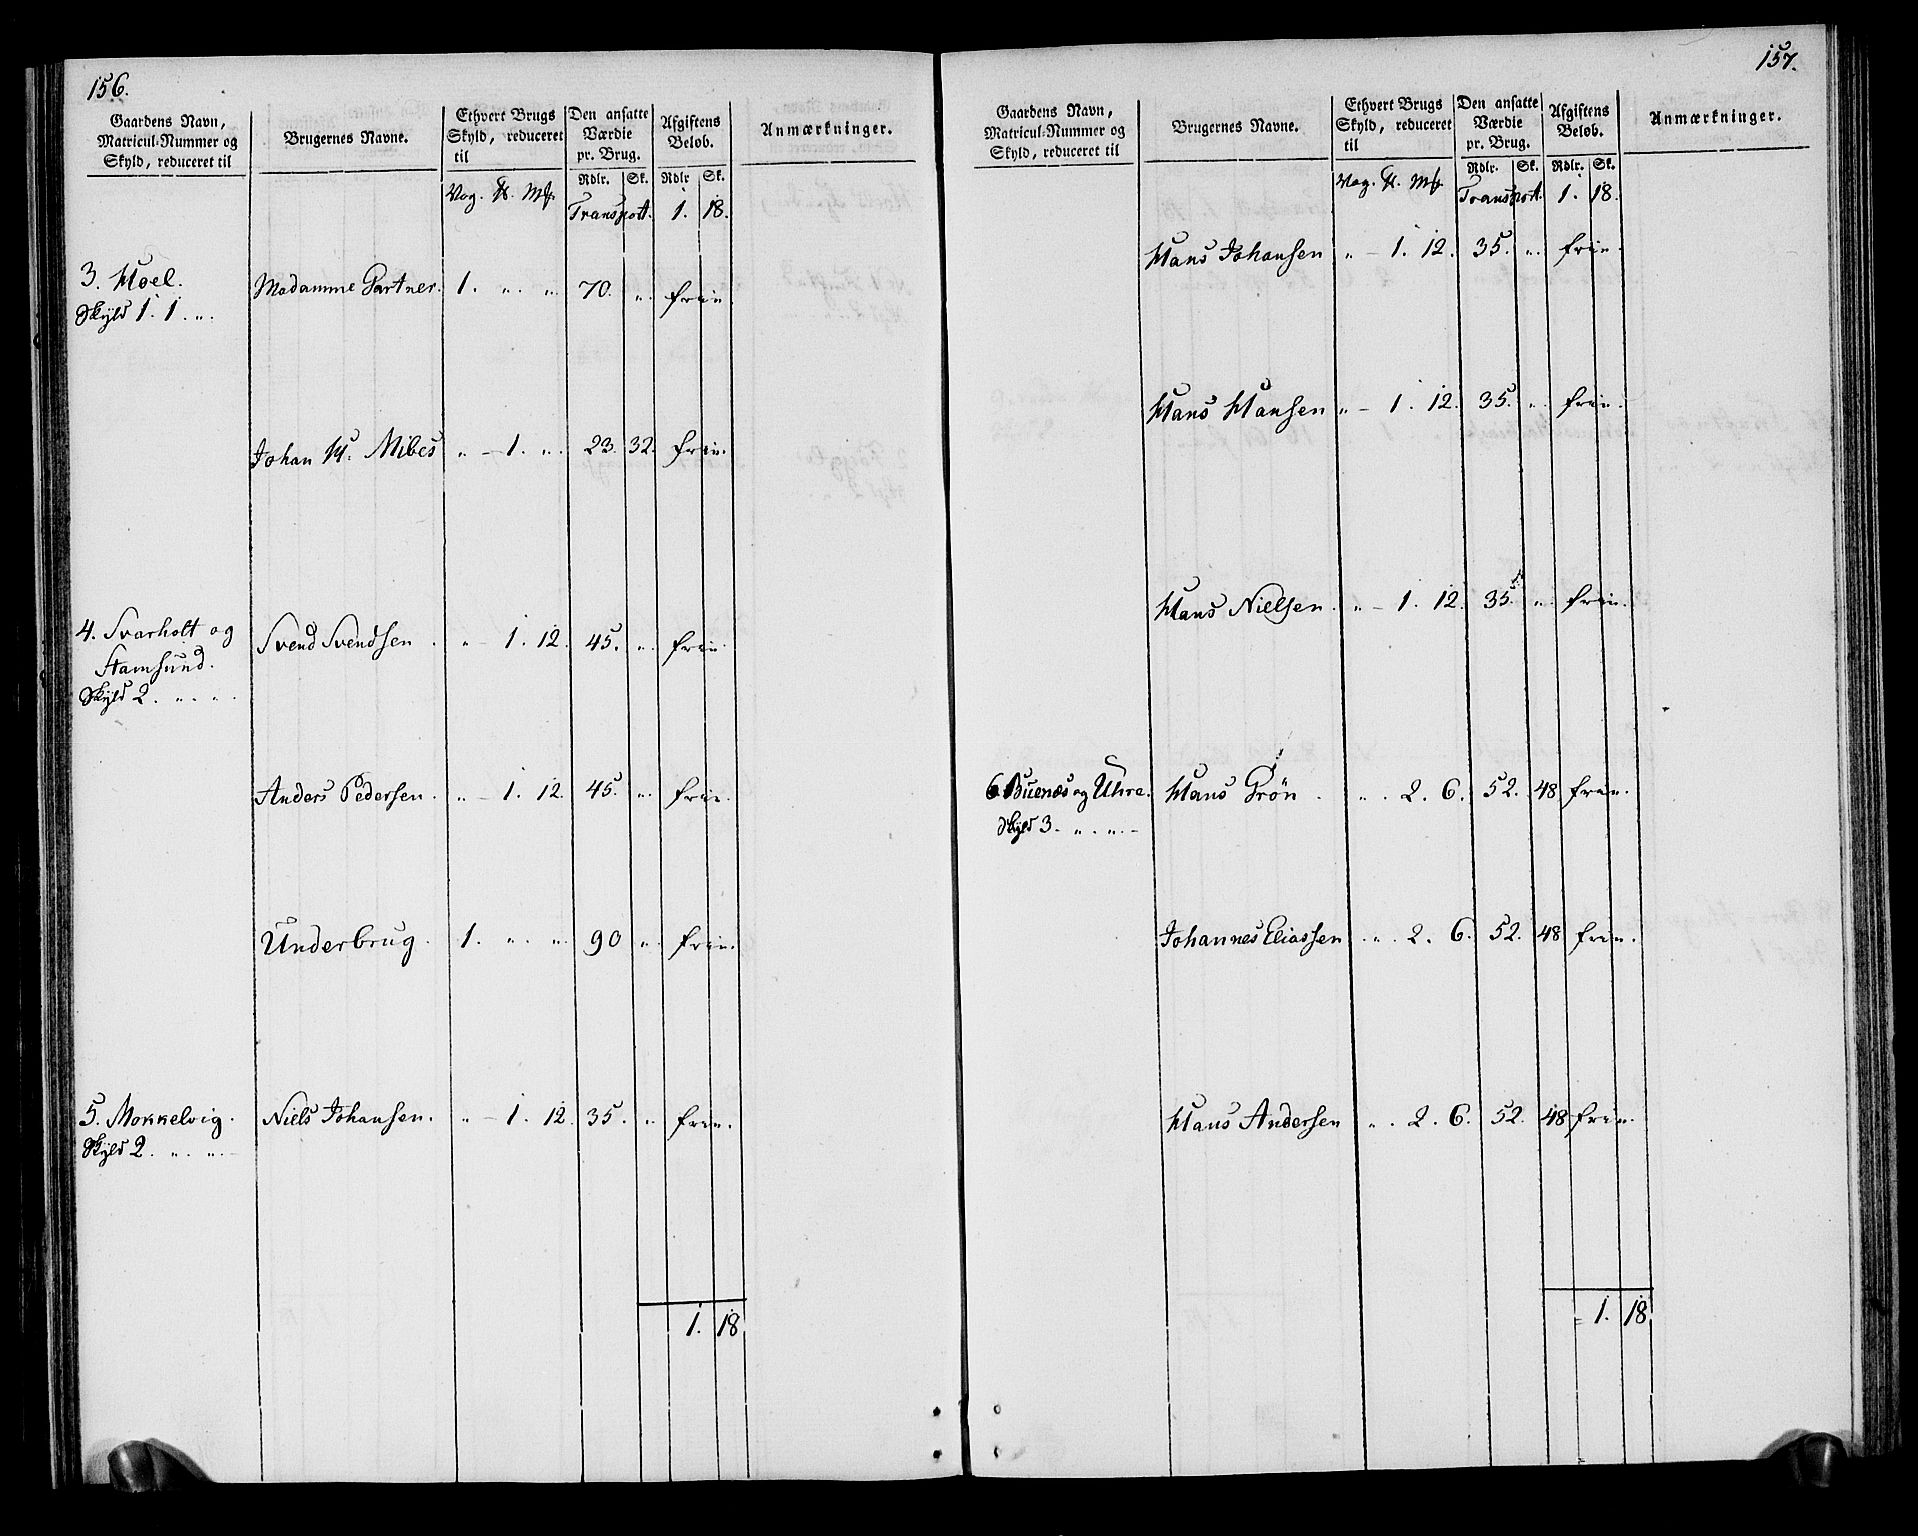 156.
Gaardens Navn, Matricul-Nummer og Skyld, reduceret til | Brugernes Navne. | Ethvert Brugs Skyld, reduceret til | Den ansatte Værdie pr. Brug. | Afgiftens Beløb. | Anmærkninger.
Rdlr. Sk. Rdlr Sk.
Vog. Mk.
Transport. 1. 18.
3. Hoel. Madamme Gartner. 1. „ „ 70. „ frie.
Skyld 1. 1. „.
Johan H. Mibes „ – 1. „. 23. 32. frie.
4. Svarholt og Svend Svendsen . „ – 1. 12. 45. „. frie.
Stamsund.
Skyld 2. „. „.
Anders Pedersen. „ – 1. 12. 45. „. frie.
Underbrug. 1. „. „. 90 „. frie.
5. Mokkelvig. Niels Johansen. „ – 1. 12. 35. „. frie.
Skyld 2. „. „. –
1. 18
157.
Gaardens Navn, Matricul-Nummer og Skyld, reduceret til | Brugernes Navne. | Ethvert Brugs Skyld, reduceret til | Den ansatte Værdie pr. Brug. | Afgiftens Beløb. | Anmærkninger.
Rdlr. Sk. Rdlr. Sk.
Vog. Mk.
Transport. 1. 18.
Hans Johansen „ – 1. 12. 35. „. frie.
Hans Hansen „ – 1. 12. 35. „. frie.
Hans Nielsen. „ – 1. 12. 35. „. frie.
6 Buenæs og Uhre. Hans Grön . „. 2. 6. 52. 48 frie.
Skyld 3. „. „. –
Johannes Eliassen . „. 2. 6. 52. 48 frie.
Hans Andersen „. 2. 6. 52. 48 frie.
1. 18